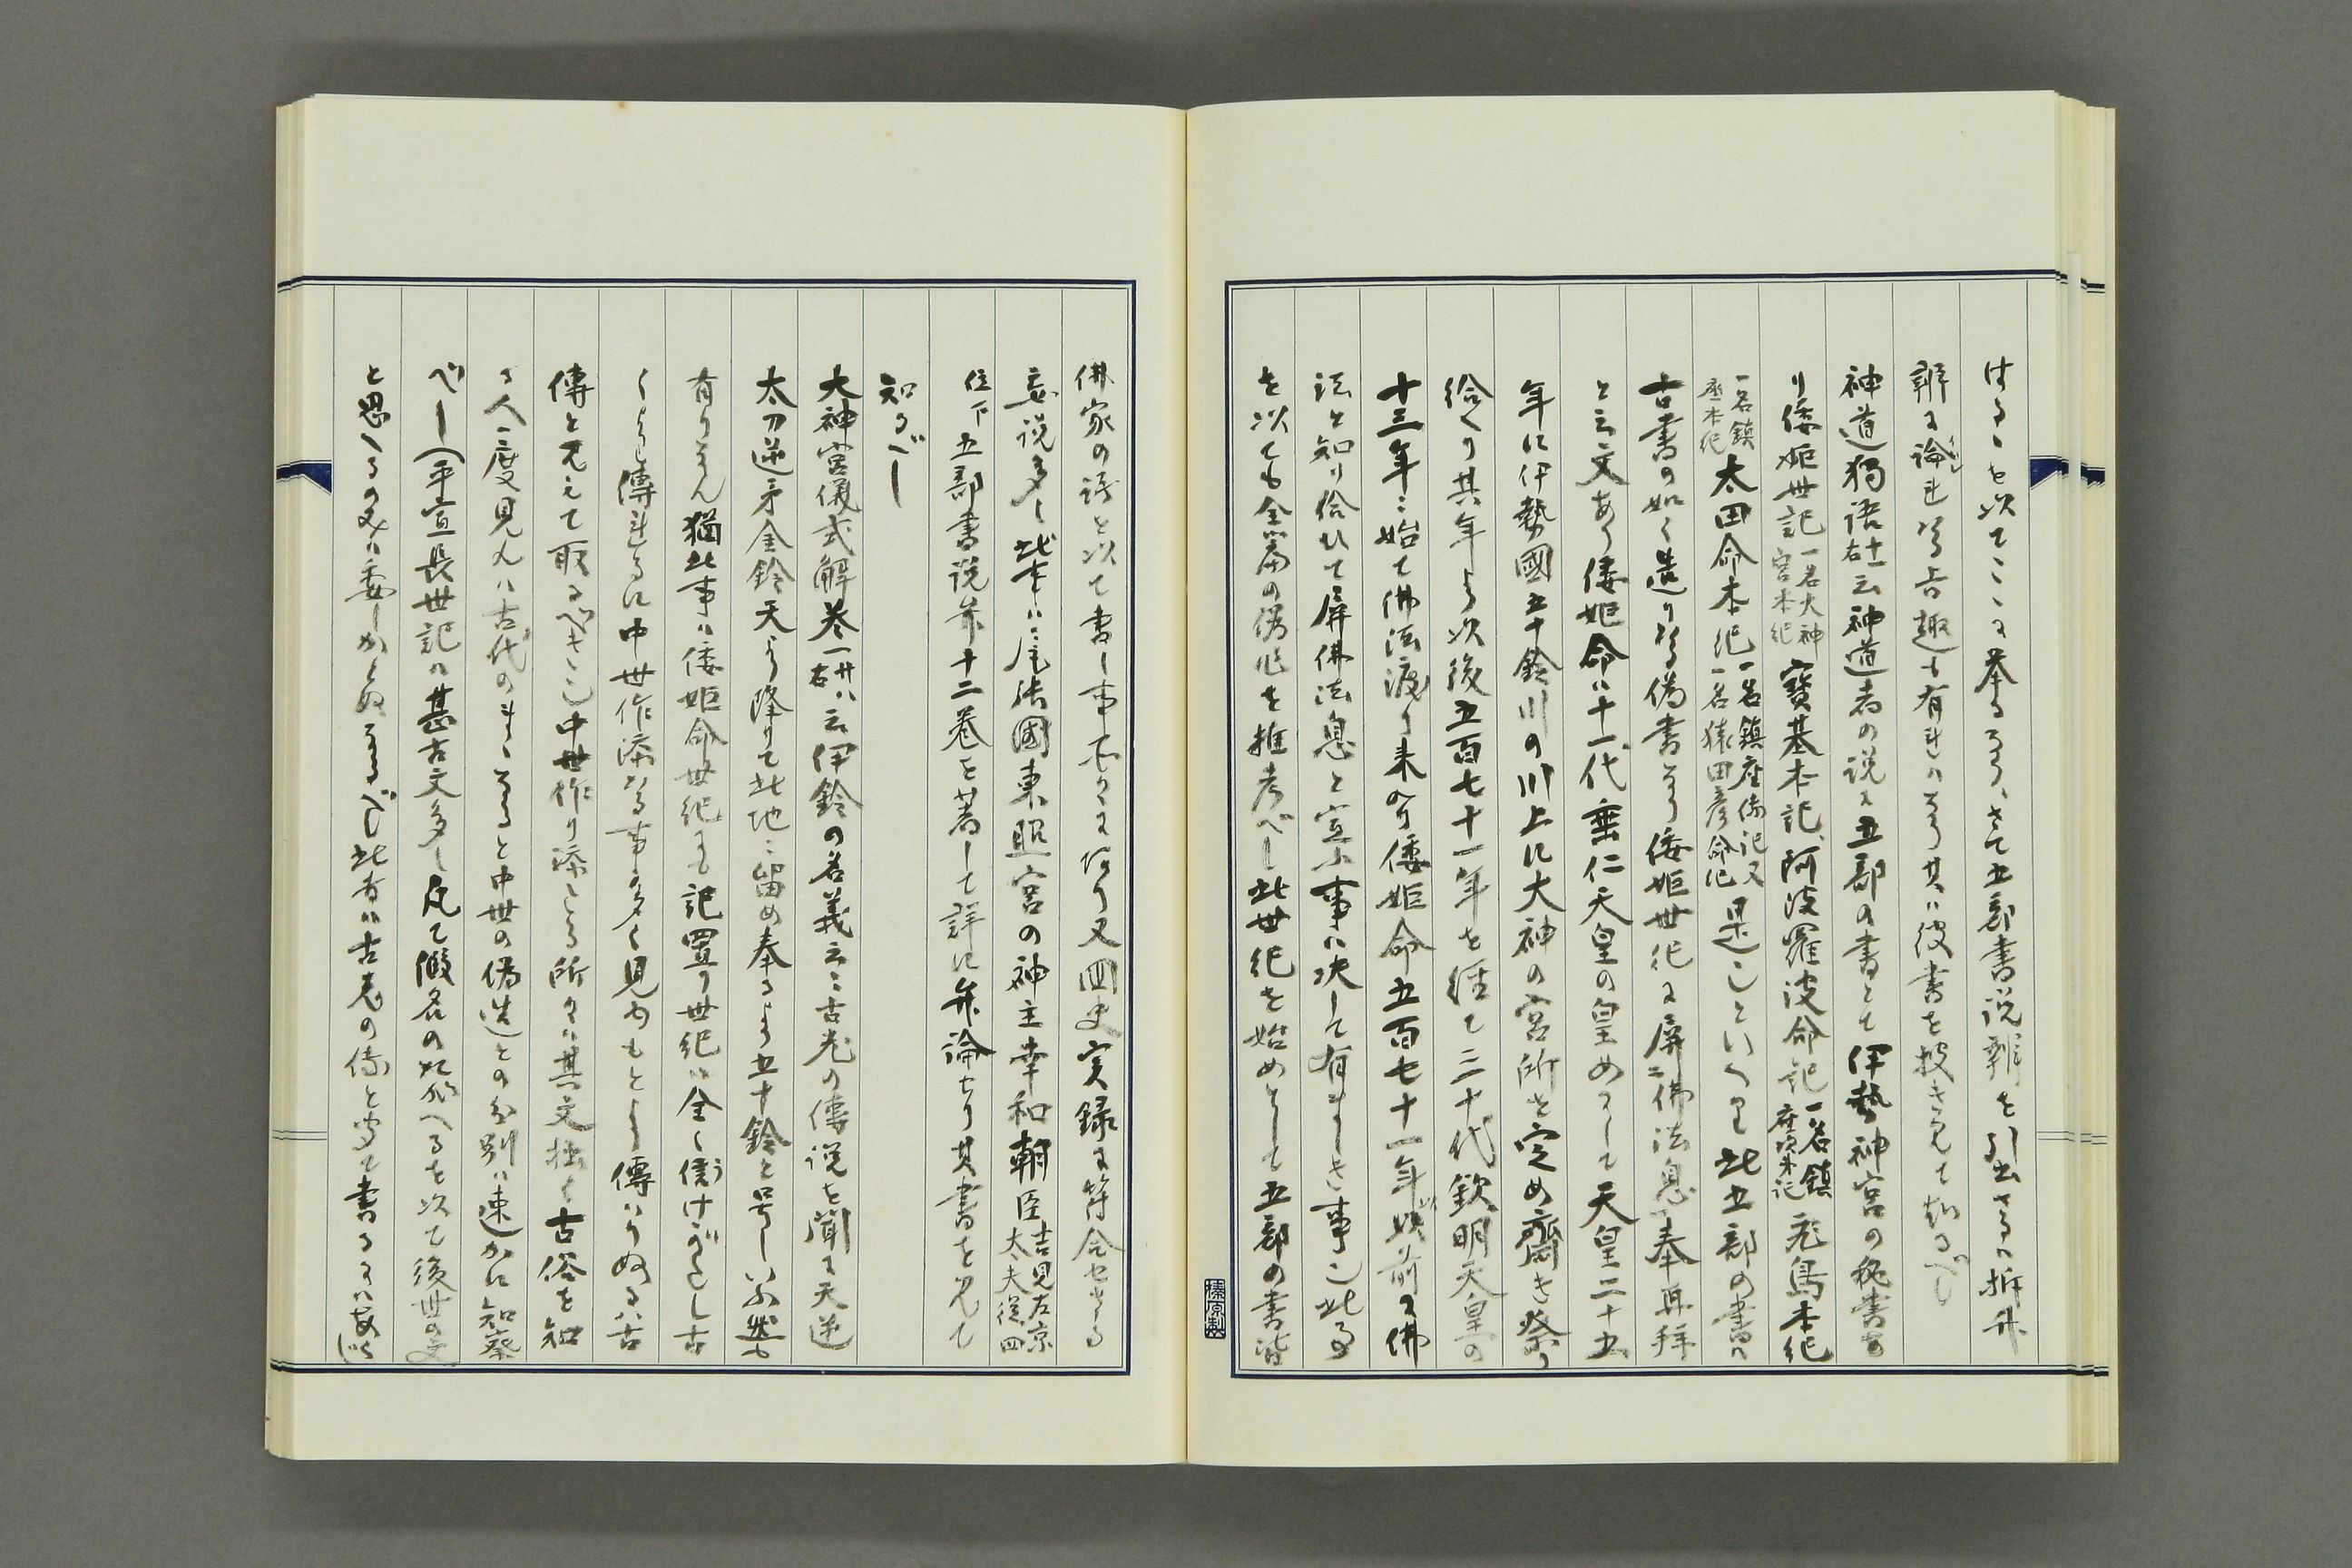 はるゝを以てこゝに挙るなり、さて五部書説辨を引出さるは拆升
辨に論れざる旨趣も有ればなり其は彼書を披き見て知るべし
神道獨語十一右云神道者の説に五部の書とて伊勢神宮の秘書あ
り倭姫世記一名大神宮本紀寶基本記、阿波羅波命記一名鎮座次第記飛鳥本紀
一名鎮座本紀太田命本紀一名鎮座傳記又一名猿田彦命記是也といへり此五部の書は
古書の如く造りたる偽書なり倭姫世紀に屏二佛法息一奉再拝
と云文あり倭姫命は十一代垂仁天皇の皇女にして天皇二十五
年に伊勢國五十鈴川の川上に大神の宮所を定め齋き祭り
給へり其年より以後五百七十一年を経て三十代欽明天皇の
十三年に始て佛法渡り来る倭姫命五百七十一年以前に佛
法を知り給ひて屏佛法息と宣ふ事は決して有まじき事也此る
を以ても全篇の偽作を推考べし此世紀を始めとして五部の書皆
榛原製
佛家の語を以て書し事所々にあり又四史実録に符合せざる
妄説多し此事は尾張國東照宮の神主幸和朝臣吉見左京太夫従四
位下五部書説弁十二巻を著して詳に弁論せり其書を見て
知るべし
大神宮儀式解巻一廿八右云伊鈴の名義云々古老の傳説を聞に天逆
太刀逆矛金鈴天より降りて此地に留め奉るより五十鈴と号しいふ然も
有りなん猶此事は倭姫命世紀にも記置り世紀は全く僞けがらし古
くより傳れるに中世作添たる事多く見ゆもとより傳はりぬるは古
傳と見えて取るべき也中世作り添しる所々は其文拙く古俗を知
る人一度見れは古代のまゝなると中世の偽造との分別は速かに知察
べし（平宣長世記は甚古文多し凡て假名の如かへるを以て後世の文
と思へるの又は委しからぬなるべし此書は古老の傳と実に書るには